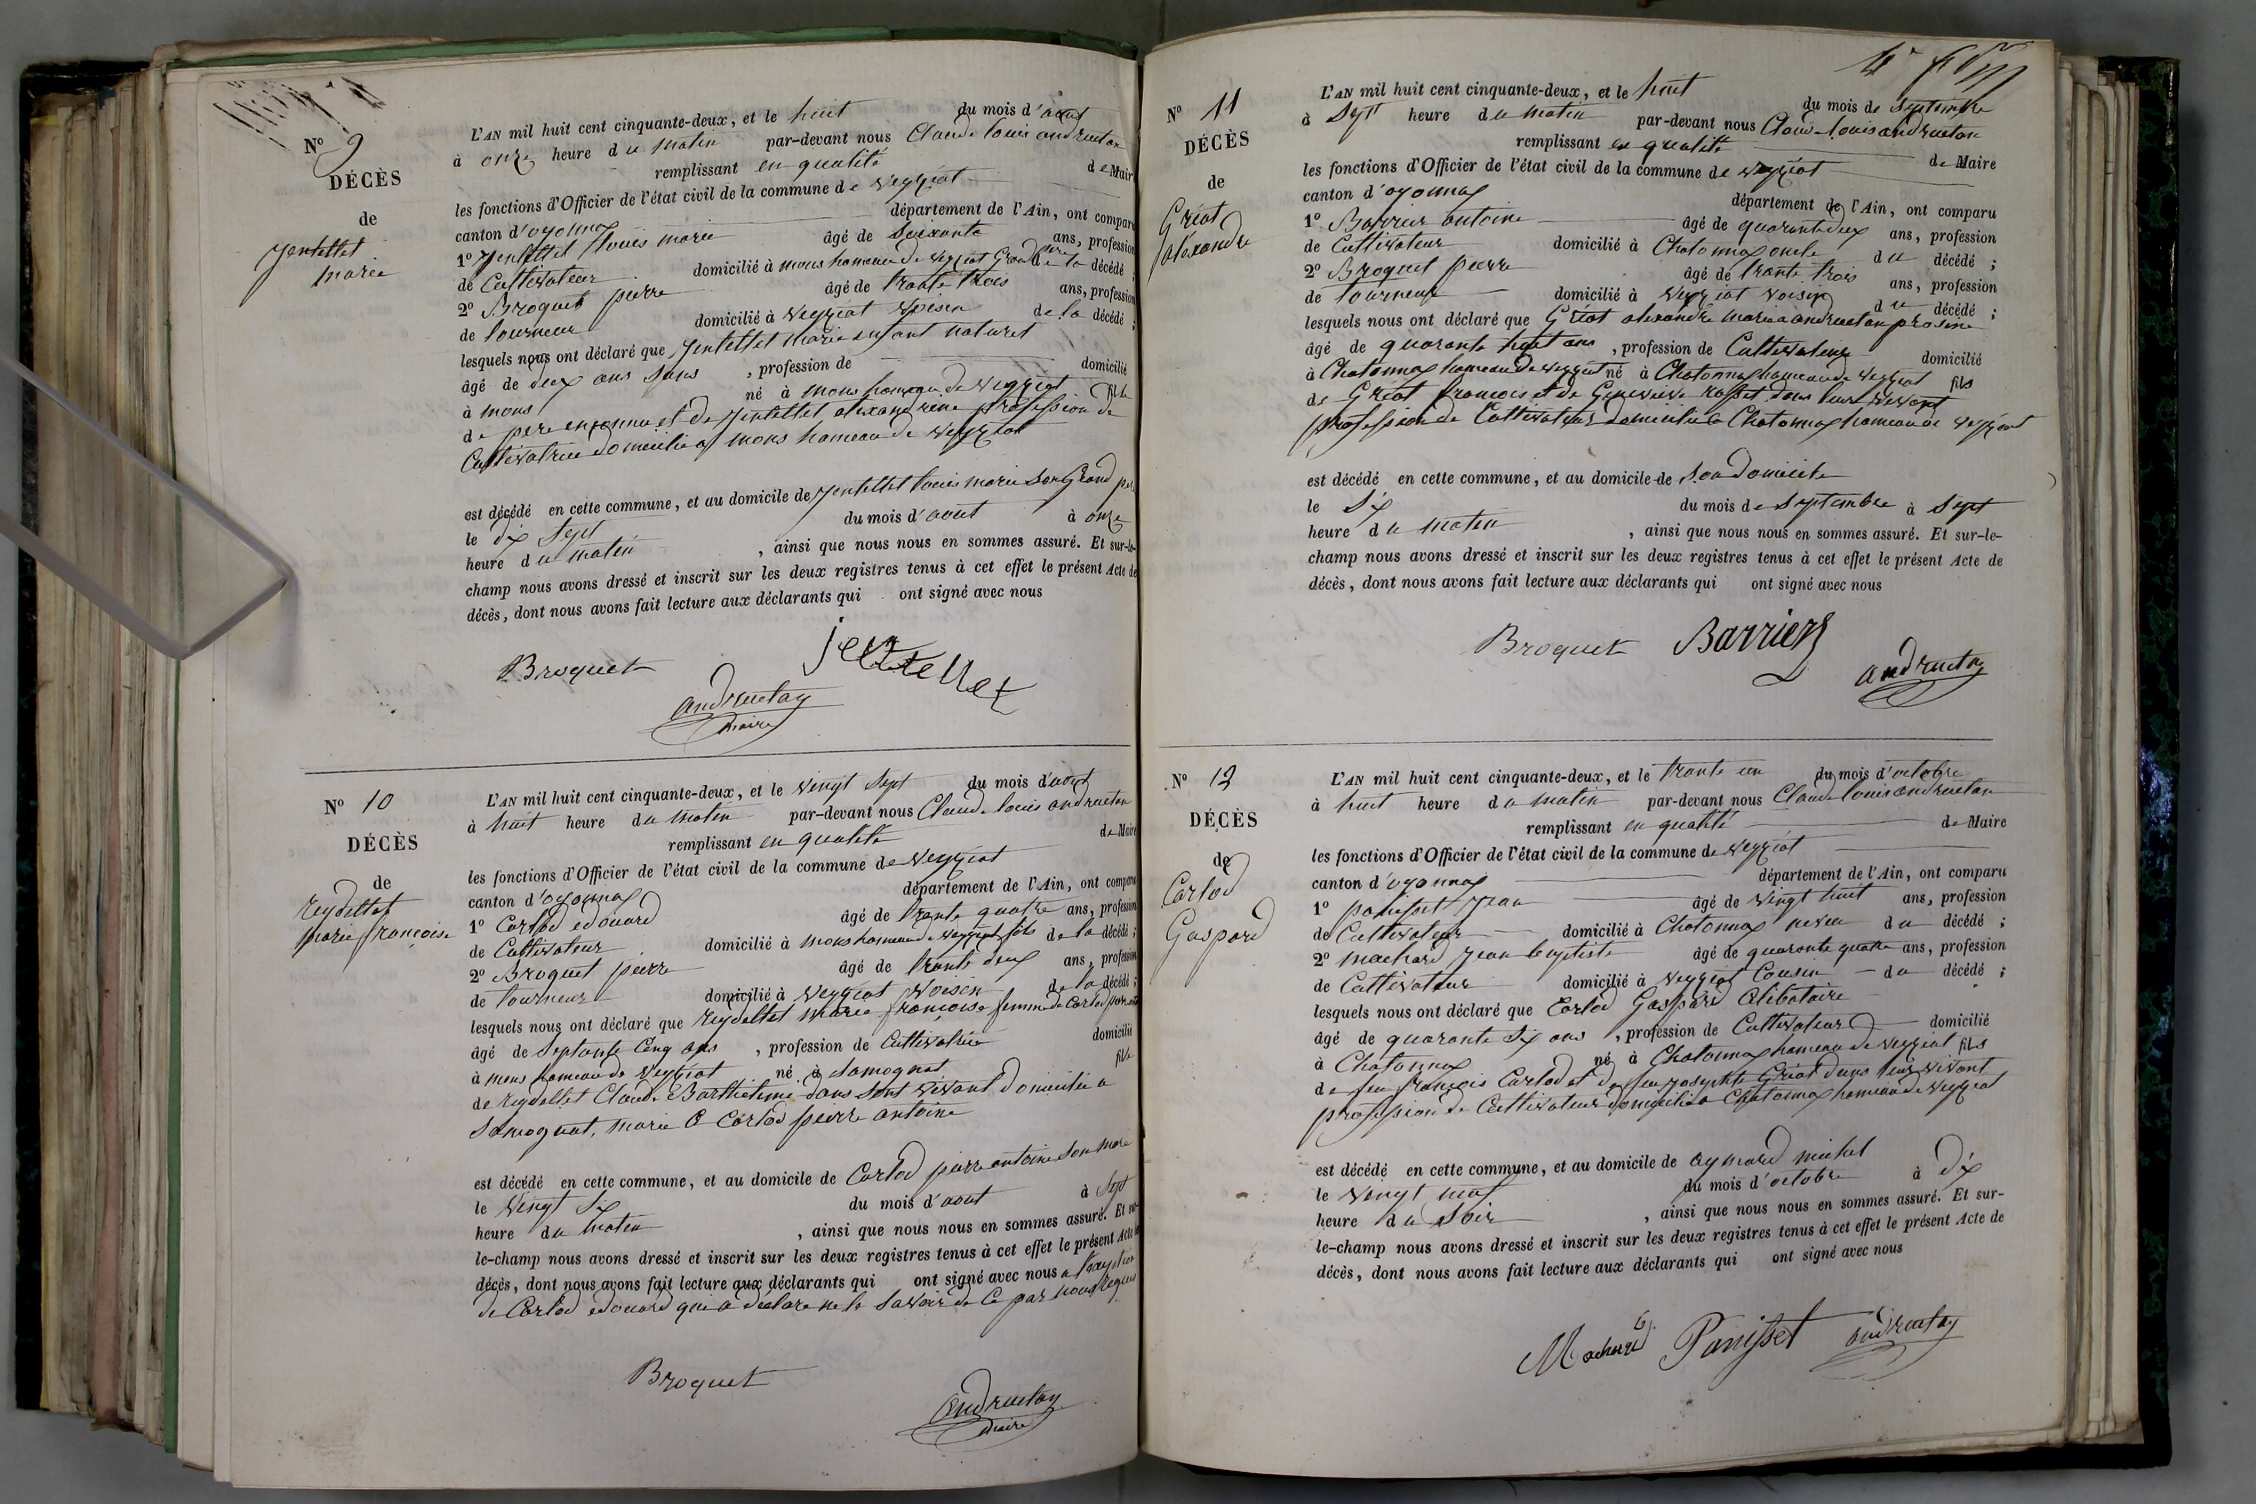 N° 9
DÉCÈS
de
Jentellet
marie
L'AN mil huit cent cinquante-deux, et le huit du mois d'aout
à onze heure du matin par-devant nous Claude louis andrueton
remplissant en qualité de Mair
les fonctions d'Officier de l'état civil de la commune de veyziat
canton d'oyonnax département de l'Ain, ont comparu
1° Jentellet louis marie âgé de soixante ans, profession
de Cultivateur domicilié à mons hameau de veyziat Grand de la décédé ;
2° Broquet pierre âgé de trante trois ans, profession
de tourneur domicilié à veyziat voisin de la décédé ;
lesquels nous ont déclaré que Jentellet marie enfant naturel
âgé de deux ans sans , profession de domicilié
à mons né à mons hameau de veyziat fille
de pere inconnu et de Jentellet alexandrine profession de
Cultivatrice domicilié a mons hameau de veyziat
est décédé en cette commune, et au domicile de Jentellet louis marie son Grand per
le dix sept du mois d'aout à onze
heure du matin , ainsi que nous nous en sommes assuré. Et sur-le-
champ nous avons dressé et inscrit sur les deux registres tenus à cet effet le présent Acte de
décès, dont nous avons fait lecture aux déclarants qui ont signé avec nous
Broquet jentellet
andrueton
maire
N° 10
DÉCÈS
de
reydellet
marie françoise
L'AN mil huit cent cinquante-deux, et le vingt sept du mois d'aout
à huit heure du matin par-devant nous Claude louis andrueton
remplissant en qualité de Maire
les fonctions d'Officier de l'état civil de la commune de veyziat
canton d'oyonnax département de l'Ain, ont comparu
1° Carlod edouard âgé de trante quatre ans, profession
de Cultivateur domicilié à mons hameau de veyziat fils de la décédé ;
2° Broquet pierre âgé de trante deux ans, profession
de tourneur domicilié à veyziat voisin de la décédé ;
lesquels nous ont déclaré que reydellet marie françoise femme de Carlod
âgé de septante Cinq ans , profession de Cultivatrice domicilié
à mons hameau de veyziat né à samognat fille
de reydellet Claude Barthelemi dans sont vivant domicilié a
samognat, marié a Carlod pierre antoine
est décédé en cette commune, et au domicile de Carlod pierre antoine son mari
le vingt six du mois d'aout à sept
heure du matin , ainsi que nous nous en sommes assuré. Et sur-
le-champ nous avons dressé et inscrit sur les deux registres tenus à cet effet le présent Acte de
décès, dont nous avons fait lecture aux déclarants qui ont signé avec nous a
de Carlod edouard que a déclaré ne le savoir de Ce par nous requis
Broquet
andrueton
maire
N° 11
DÉCÈS
de
Gréot
alexandre
L'AN mil huit cent cinquante-deux, et le huit du mois de septembre
à sept heure du matin par-devant nous Claude louis andrueton
remplissant en qualité de Maire
les fonctions d'Officier de l'état civil de la commune de veyziat
canton d'oyonnax département de l'Ain, ont comparu
1° Barrier antoine âgé de quarante deux ans, profession
de Cultivateur domicilié à Chatonnax oncle du décédé ;
2° Broquet pierre âgé de trante trois ans, profession
de tourneur domicilié à veyziat voisin du décédé ;
lesquels nous ont déclaré que Gréot alexandre marié a andrueton
âgé de quarante huit ans , profession de Cultivateur domicilié
à Chatonnax hameau de veyziat né à Chatonnax hameau de veyziat fils
de Gréot françois et de Genevieve rosset dans leur vivant
profession de Cultivateur domicilié a Chatonnax hameau de veyziat
est décédé en cette commune, et au domicile de son domicile
le six du mois de septembre à sept
heure du matin , ainsi que nous nous en sommes assuré. Et sur-le-
champ nous avons dressé et inscrit sur les deux registres tenus à cet effet le présent Acte de
décès, dont nous avons fait lecture aux déclarants qui ont signé avec nous
Broquet Barrier
andrueton
N° 12
DÉCÈS
de
Carlod
Gaspard
L'AN mil huit cent cinquante-deux, et le trante un du mois d'octobre
à huit heure du matin par-devant nous Claude louis andrueton
remplissant en qualité de Maire
les fonctions d'Officier de l'état civil de la commune de veyziat
canton d'oyonnax département de l'Ain, ont comparu
1° panisset Jean âgé de vingt huit ans, profession
de Cultivateur domicilié à Chatonnax neveu du décédé ;
2° machard Jean baptiste âgé de quarante quatre ans, profession
de Cultivateur domicilié à veyziat Cousin du décédé ;
lesquels nous ont déclaré que Carlod Gaspard Célibataire
âgé de quarante six ans , profession de Cultivateur domicilié
à Chatonnax né à Chatonnax hameau de veyziat fils
de feu françois Carlod et de feu Josephte Gréot dans leur vivant
profession de Cultivateur domicilié a Chatonnax hameau de veyziat
est décédé en cette commune, et au domicile de aymard michel
le vingt neuf du mois d'octobre à dix
heure du soir , ainsi que nous nous en sommes assuré. Et sur-
le-champ nous avons dressé et inscrit sur les deux registres tenus à cet effet le présent Acte de
décès, dont nous avons fait lecture aux déclarants qui ont signé avec nous
Machard Panisset andrueton